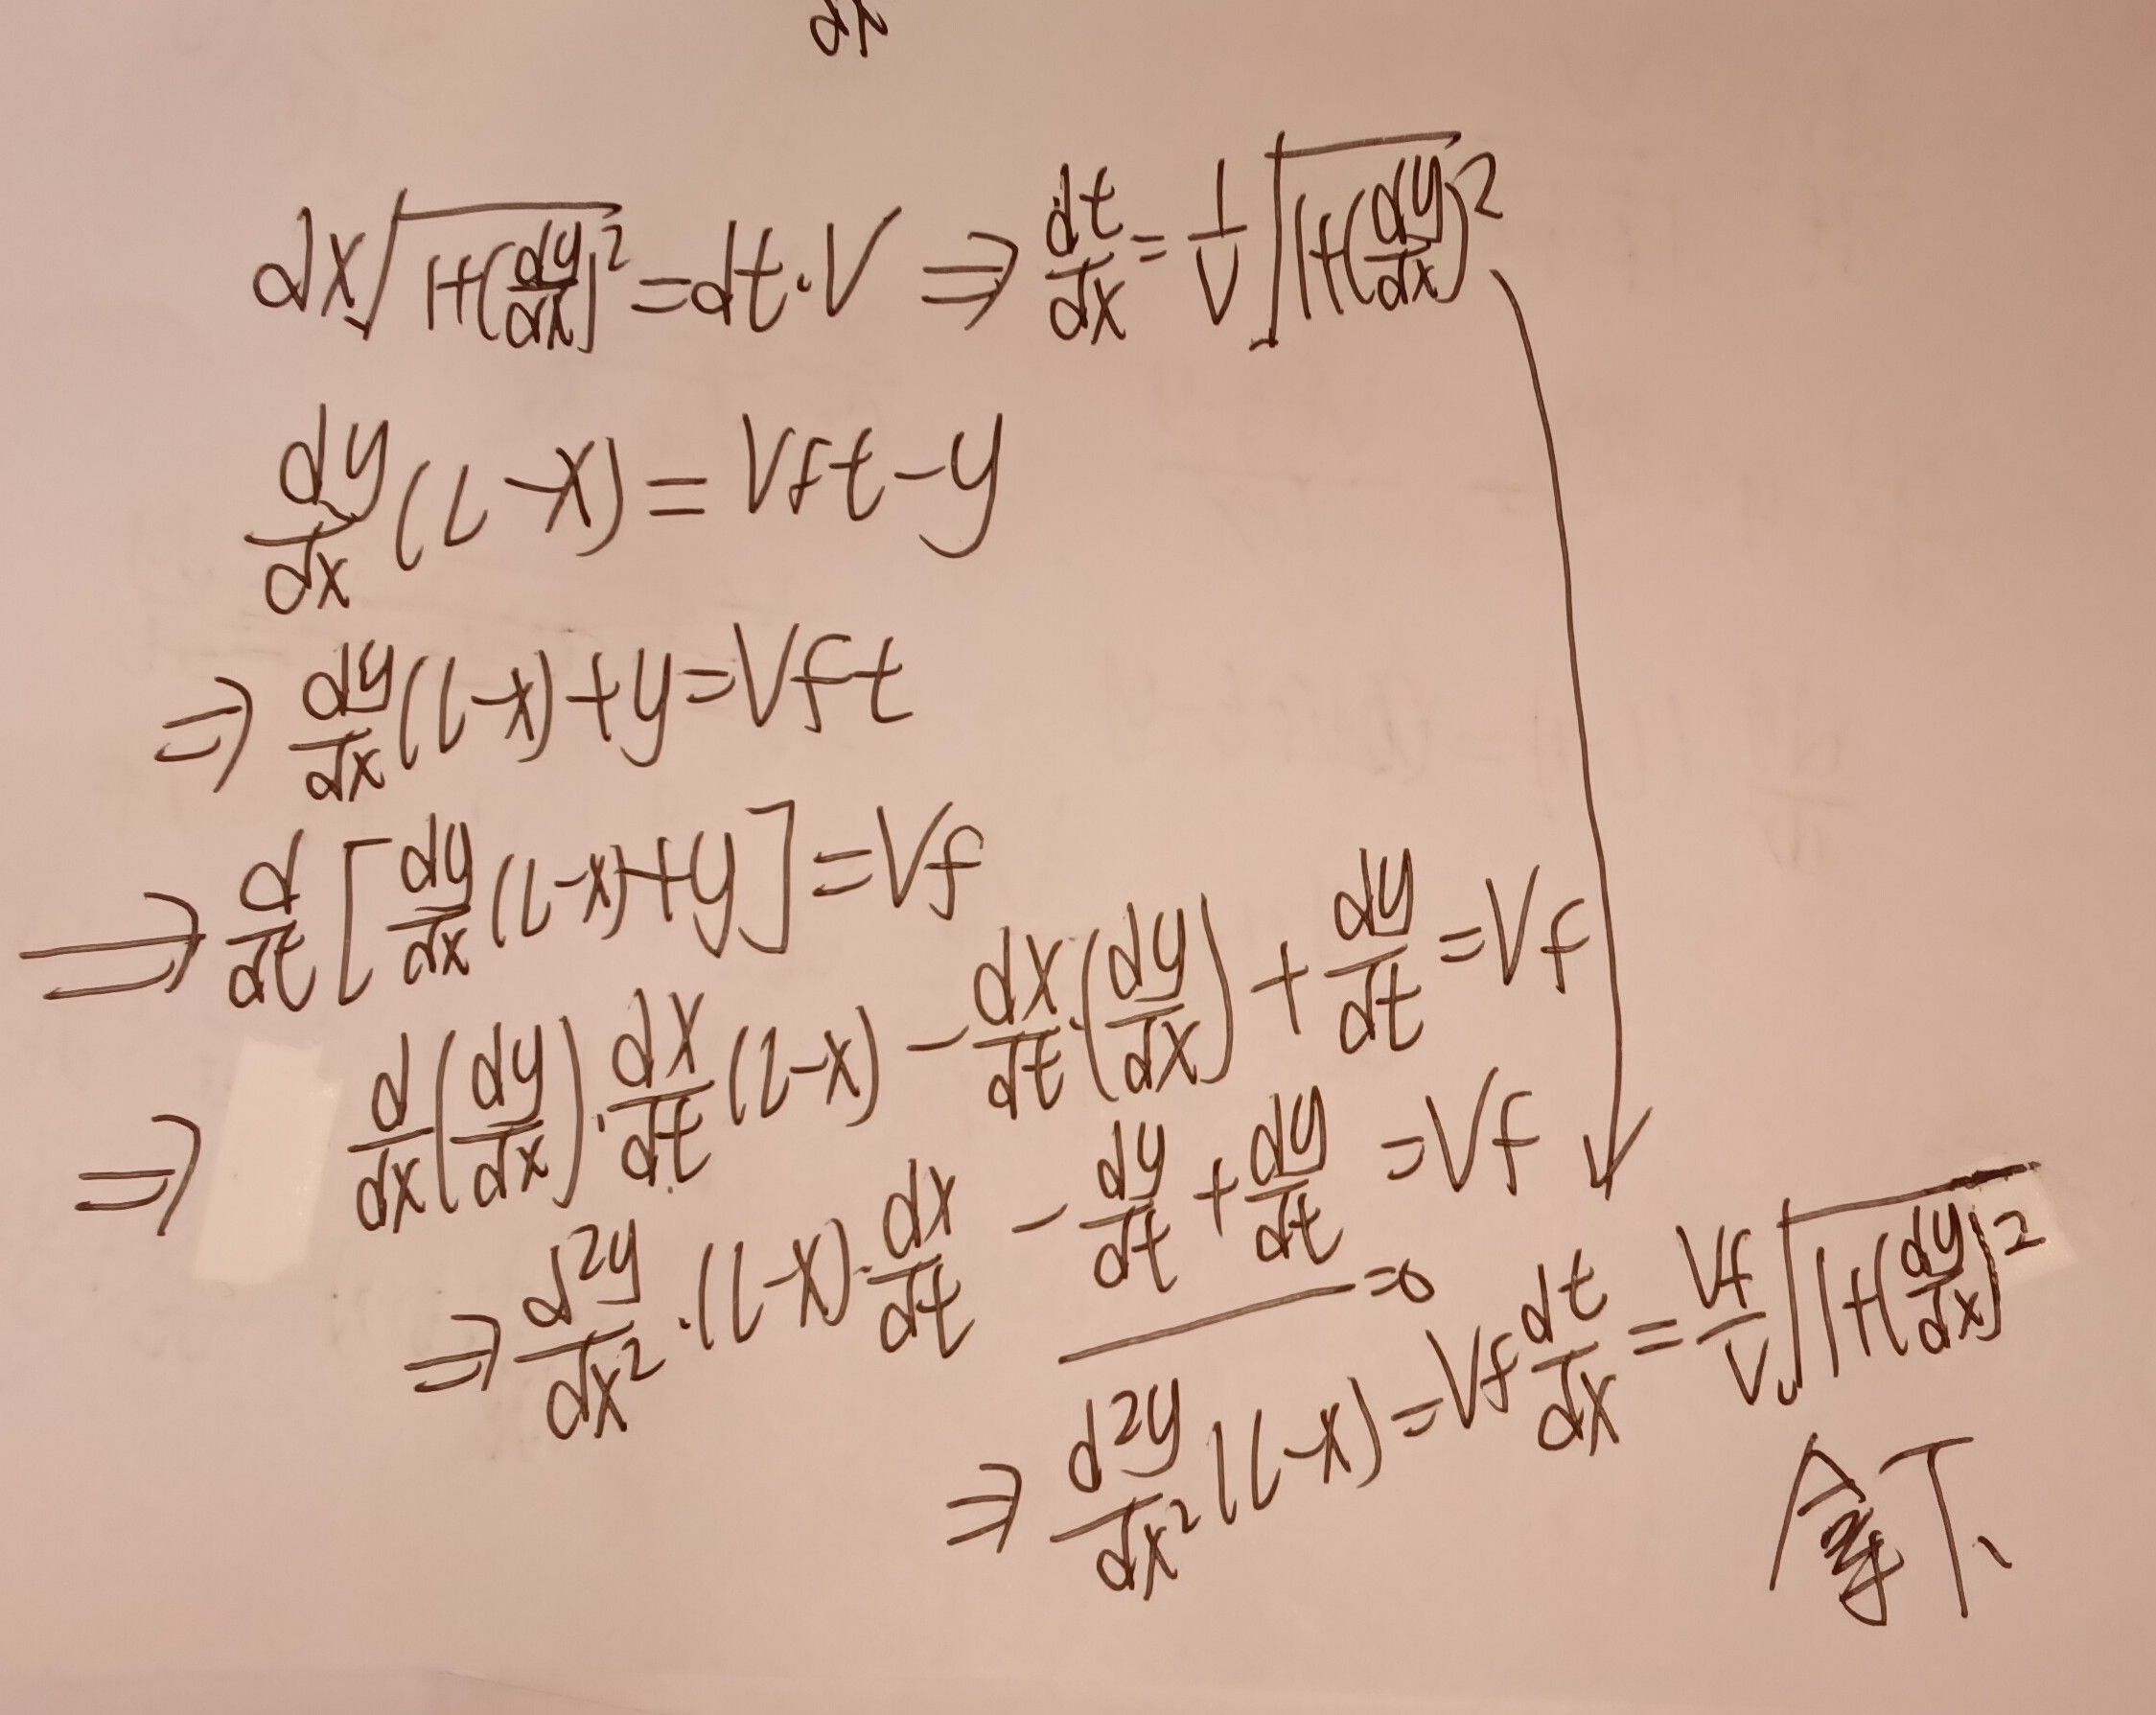 dx
dx√(1+(dy/dx)²) = dt·V ⇒ dt/dx = 1/V √(1+(dy/dx)²)
dy/dx (L-x) = Vft-y
⇒ dy/dx (L-x)+y = Vft
⇒ d/dt [dy/dx (L-x)+y] = Vf
⇒ d/dx (dy/dx)·dx/dt (L-x) - dx/dt·(dy/dx) + dy/dt = Vf
⇒ d²y/dx²·(L-x)·dx/dt - dy/dt + dy/dt = Vf
=0
⇒ d²y/dx² (L-x) = Vf dt/dx = Vf/V √(1+(dy/dx)²)
拿下